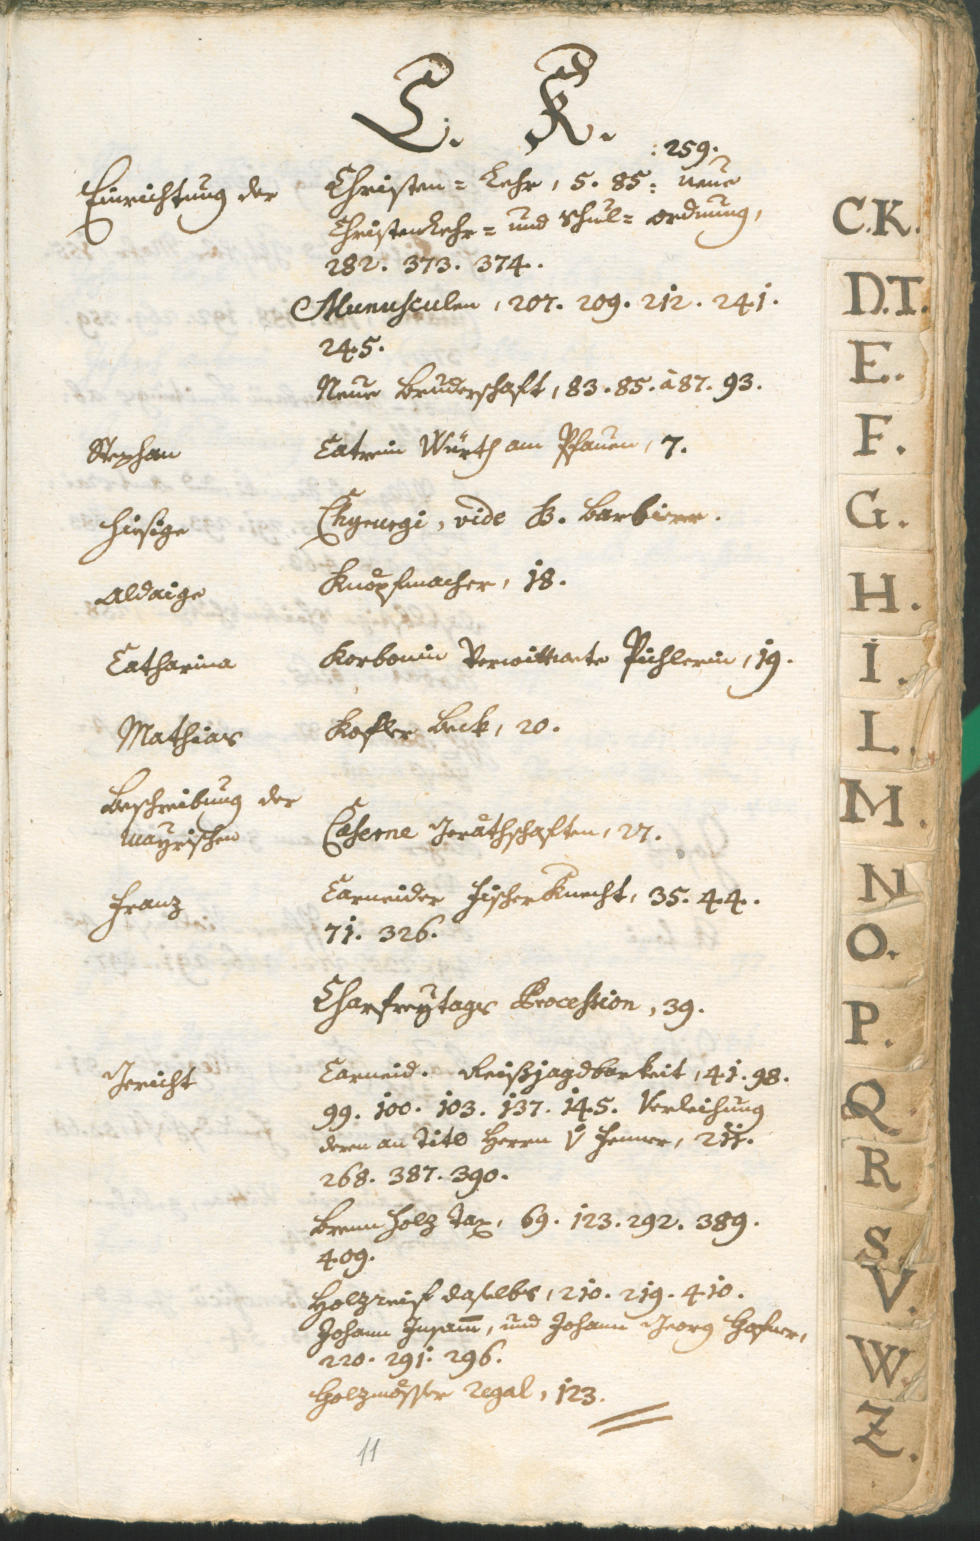 C. K.
: 259.
Einrichtung der Christen= Lehr, 5. 85: neue
Christenlehr= und Schul= ordnung,
282. 373. 374.
207. 209. 212. 241.
245.
Neue Bruderschaft, 83. 85. à 87. 93.
Stephan Catrein Würth am Pfauen, 7.
Hiesige Chyrurgi, vide B. Barbierer.
Aldaige Knöpfmacher, 18.
Catharina Korbonin Verwittwete Pichlerin, 19.
Mathias Kofler Beck, 20.
Beschreibung der
Mayrischen Caserne Geräthschaften, 27.
Franz Carneider Fischer Knecht, 35. 44.
71. 326.
Charfreytags Procession, 39.
Gericht Carneid. Reißjagdbarkeit, 41. 98.
99. 100. 103. 137. 145. Verleihung
deren an Titl Herrn v 211.
268. 387. 390.
Brennholz Tax, 69. 123. 292. 389.
409.
Holzreif daselbs, 210. 219. 410.
Johann Insam̅, und Johann Georg Hafner,
220. 291. 296.
Holzmösser Regal, 123.
11
C.K.
D.T.
E.
F.
G.
H.
I.
L.
M.
N
O.
P.
Q
R
S.
V.
W.
Z.